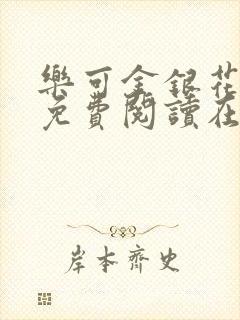 樂可金銀花
免費閱讀在
岸本齊史